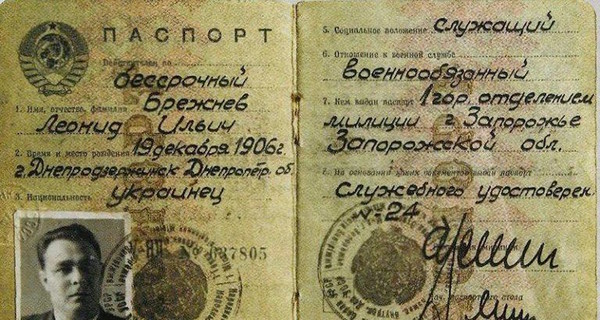 ПАСПОРТ
Действителен по
бессрочный
Брежнев
1. Имя, отчество, фамилия
Леонид Ильич
2. Время и место рождения 19 декабря 1906 г.
г. Днепродзержинск Днепропетр. об.
украинец
3. Национальность
№ 637805
5. Социальное положение служащий
6. Отношение к военной службе
военнообязанный
7. Кем выдан паспорт 1 гор. отделением
милиции г. Запорожье
Запорожской обл.
8. На основании каких документов выдан паспорт
Служебного удостовер.
V-24
Нач. паспортного стола